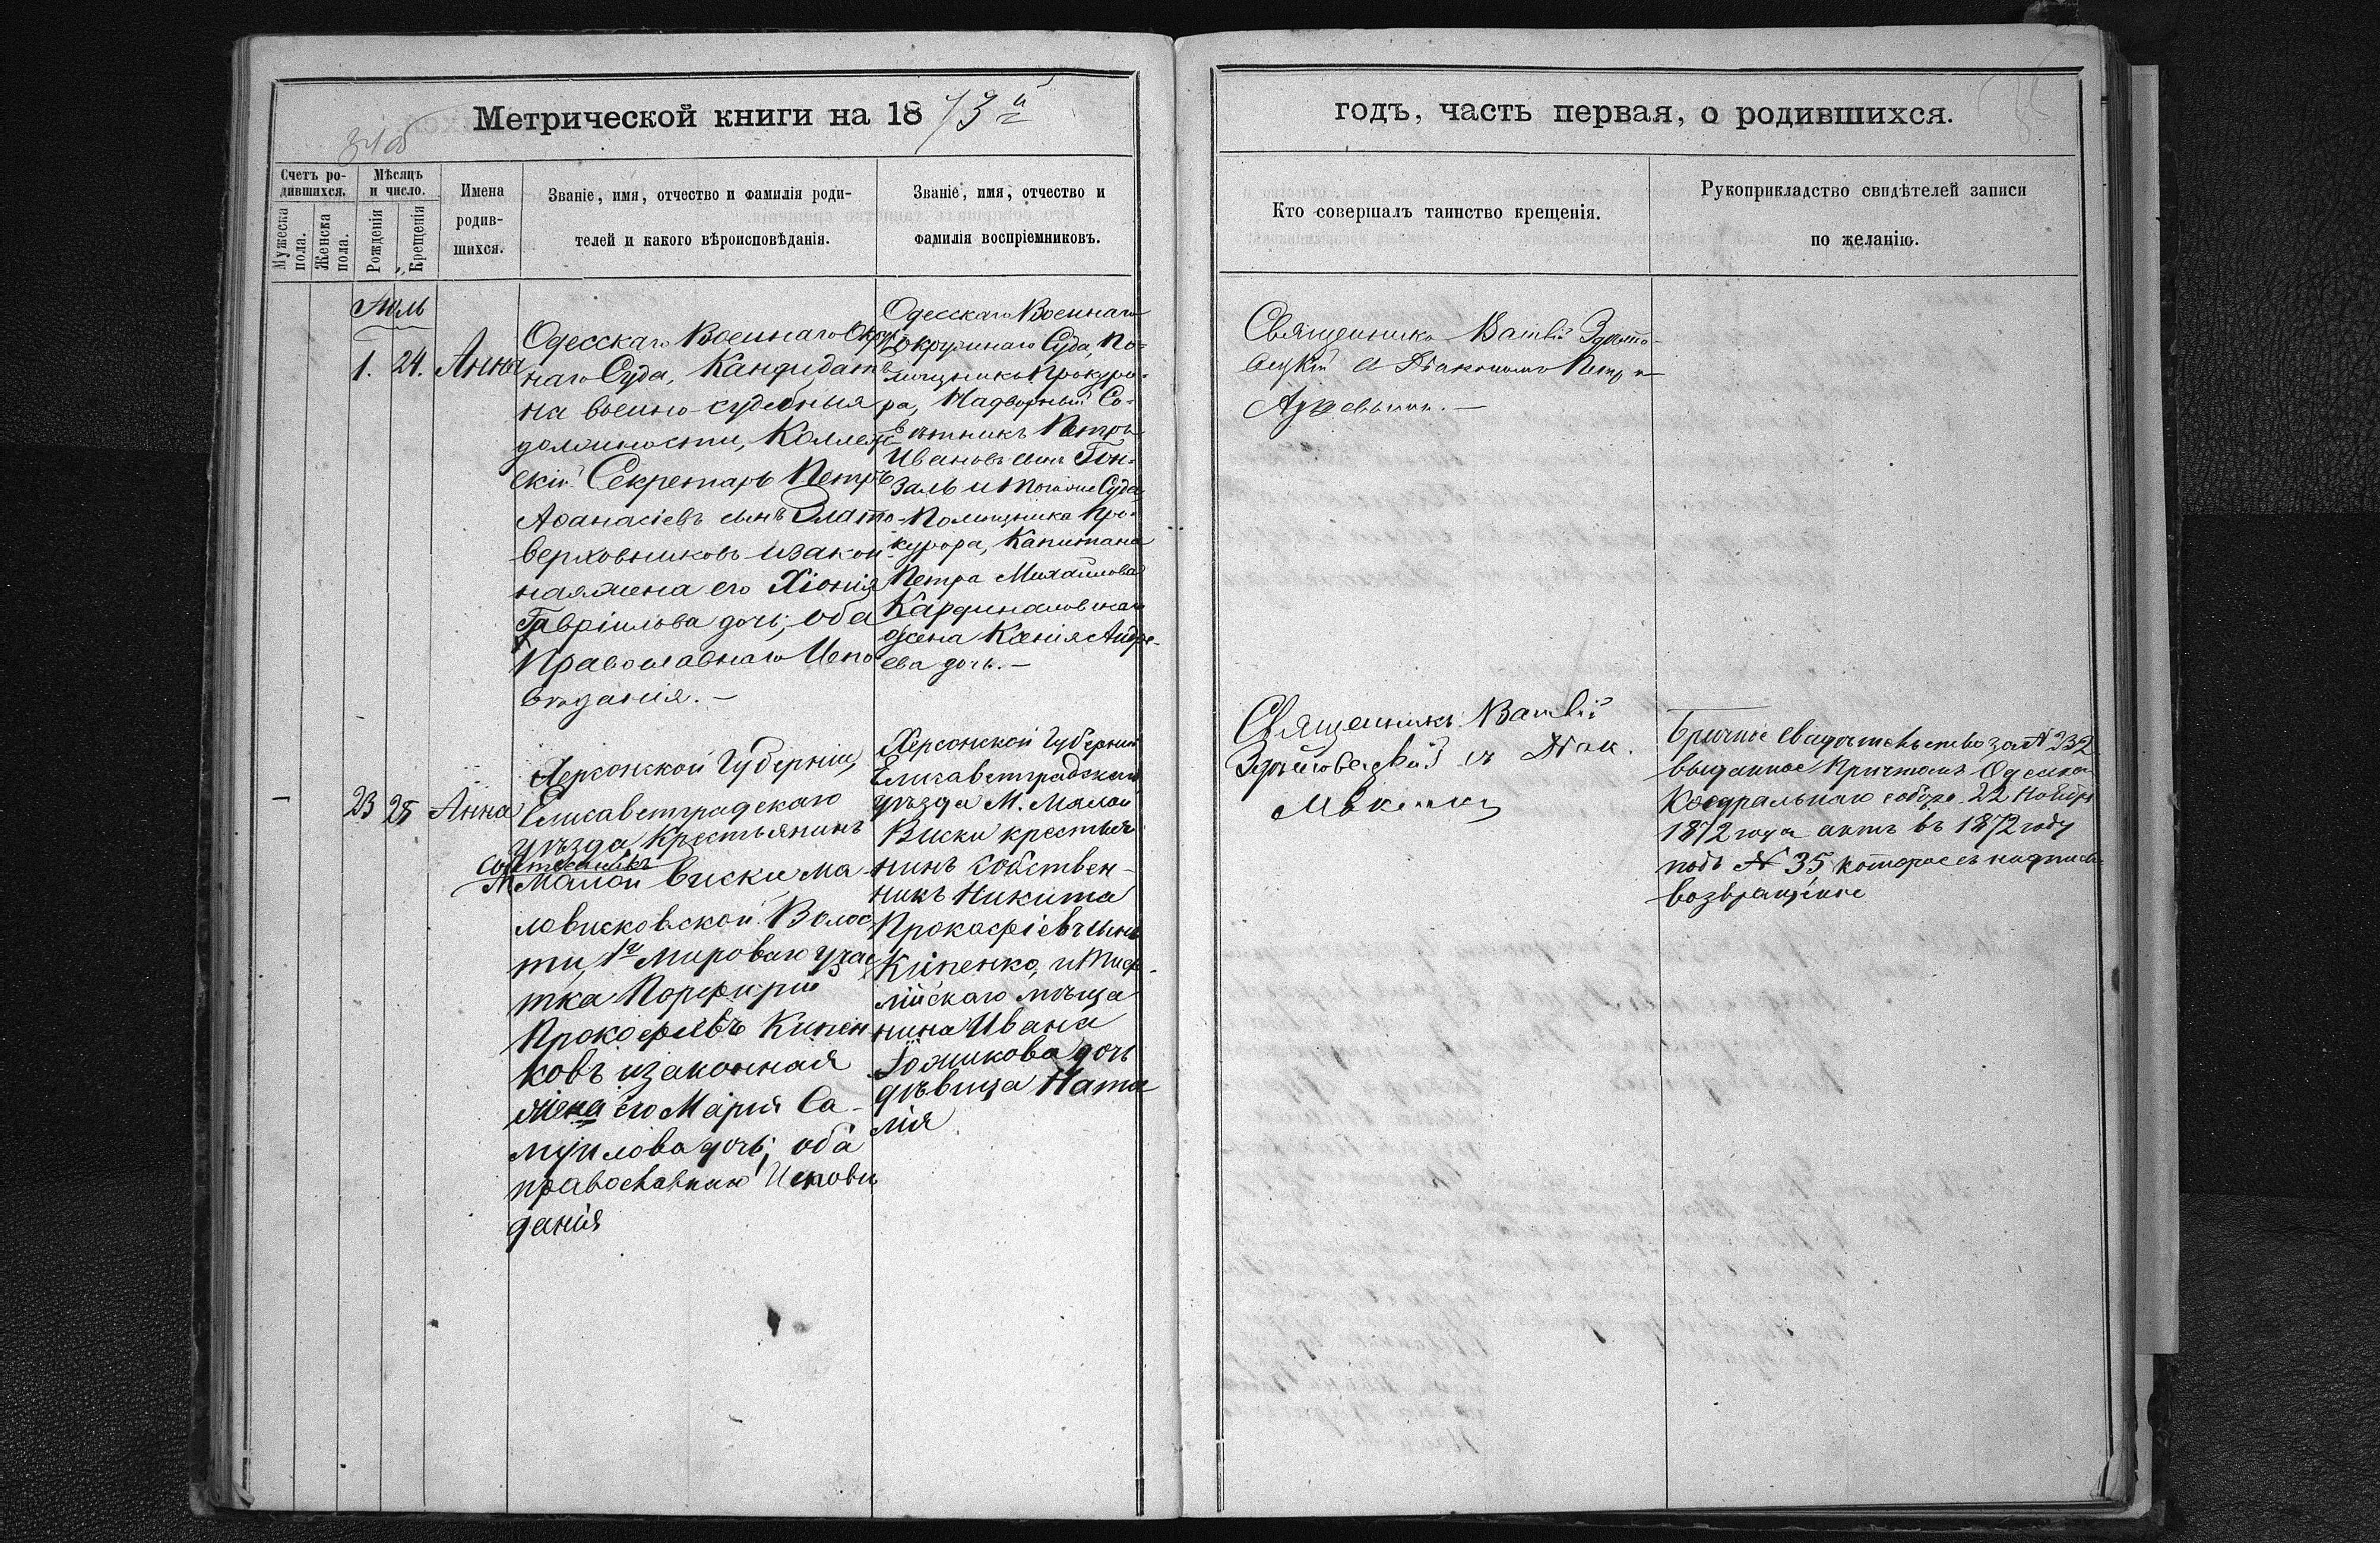 Метрической книги на 1873й
годъ, часть первая, о родившихся.
Счетъ родившихся.
Мужеска пола.
Женска пола.
Мѣсяцъ и число.
Рожденія
Крещенія
Имена
родив-
шихся.
Званіе, имя, отчество и фамилія роди-
телей и какого вѣроисповѣданія.
Званіе, имя, отчество и
фамилія воспріемниковъ.
Кто совершалъ таинство крещенія.
Рукоприкладство свидѣтелей записи
по желанію.
1. 24. Анна
Одесскаго Военнаго Окруж
наго Суда, Кандидатъ
на военно-судебныя
должности, Коллежс
скій Секретарь Петръ
Аѳанасіевъ сынъ Злато-
верховниковъ и закон-
ная жена его Хіонія
Гавріилова дочь; оба
Православнаго Испо
вѣданія.—
Одесскаго Военнаго
Окружнаго Суда, По-
мощникъ Прокуро-
ра, Надворный Со-
вѣтникъ Петръ
Ивановъ сынъ Гон-
заль и того же Суда,
Помощника Про-
курора, Капитана
Петра Михайлова
Кардиналовскаго
жена Ксенія Андре-
ева дочь.—
Священникъ
и Діакономъ Петр
— 23 25 Анна
Херсонской Губерніи,
Елисаветградскаго
уѣзда Крестьянинъ
Собственникъ
М. Малой Виски Ма-
ловисковской Волос
ти, 1го Мироваго учас
тка Порфирій
Прокофьевъ Кипен
ковъ и законная
жена его Марія Са-
муилова дочь; оба
православнаго Исповѣ
данія
Херсонской Губерніи
Елисаветградскаго
уѣзда М. Малой
Виски крестья
нинъ собствен-
никъ Никита
Прокофіевъ сынъ
Кипенко, и Тирас-
мѣща
нина Ивана
дочь
дѣвица Ната
лія
Священникъ
съ Діак.
Брачное свидѣтельство за № 232
выданное Причтомъ Одесскаго
Каѳедральнаго собора 22 Ноября
1872 года актъ въ 1872 году
подъ № 35 которое съ надписью
возвращено